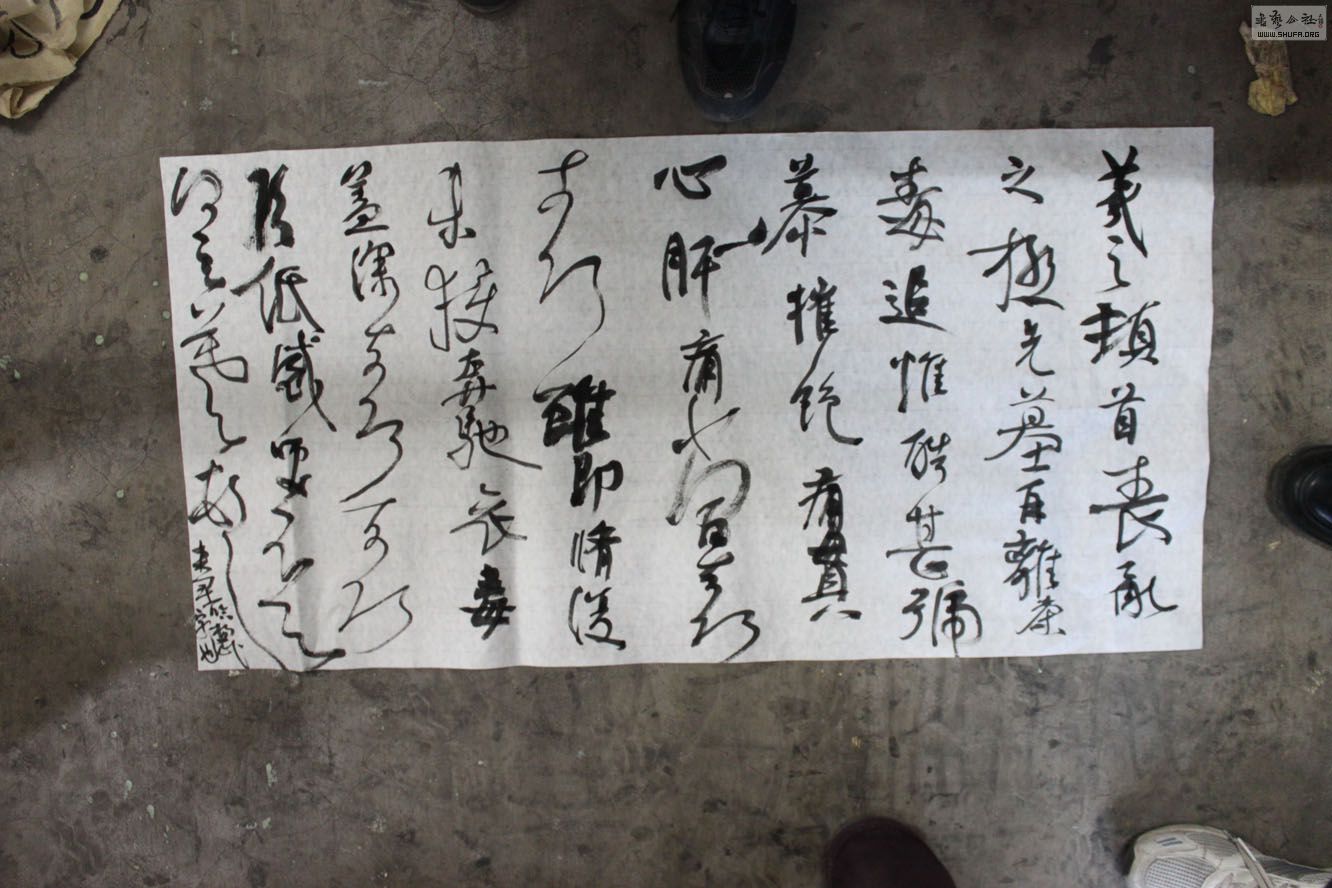 羲之頓首喪亂
之極先墓再離荼
毒追惟酷甚號
慕摧絶痛貫
心肝痛當奈何
奈何雖即脩復
未獲奔馳哀毒
益深奈何奈何
臨紙感哽不知
何言羲之頓首
書藝公社
WWW.SHUFA.ORG